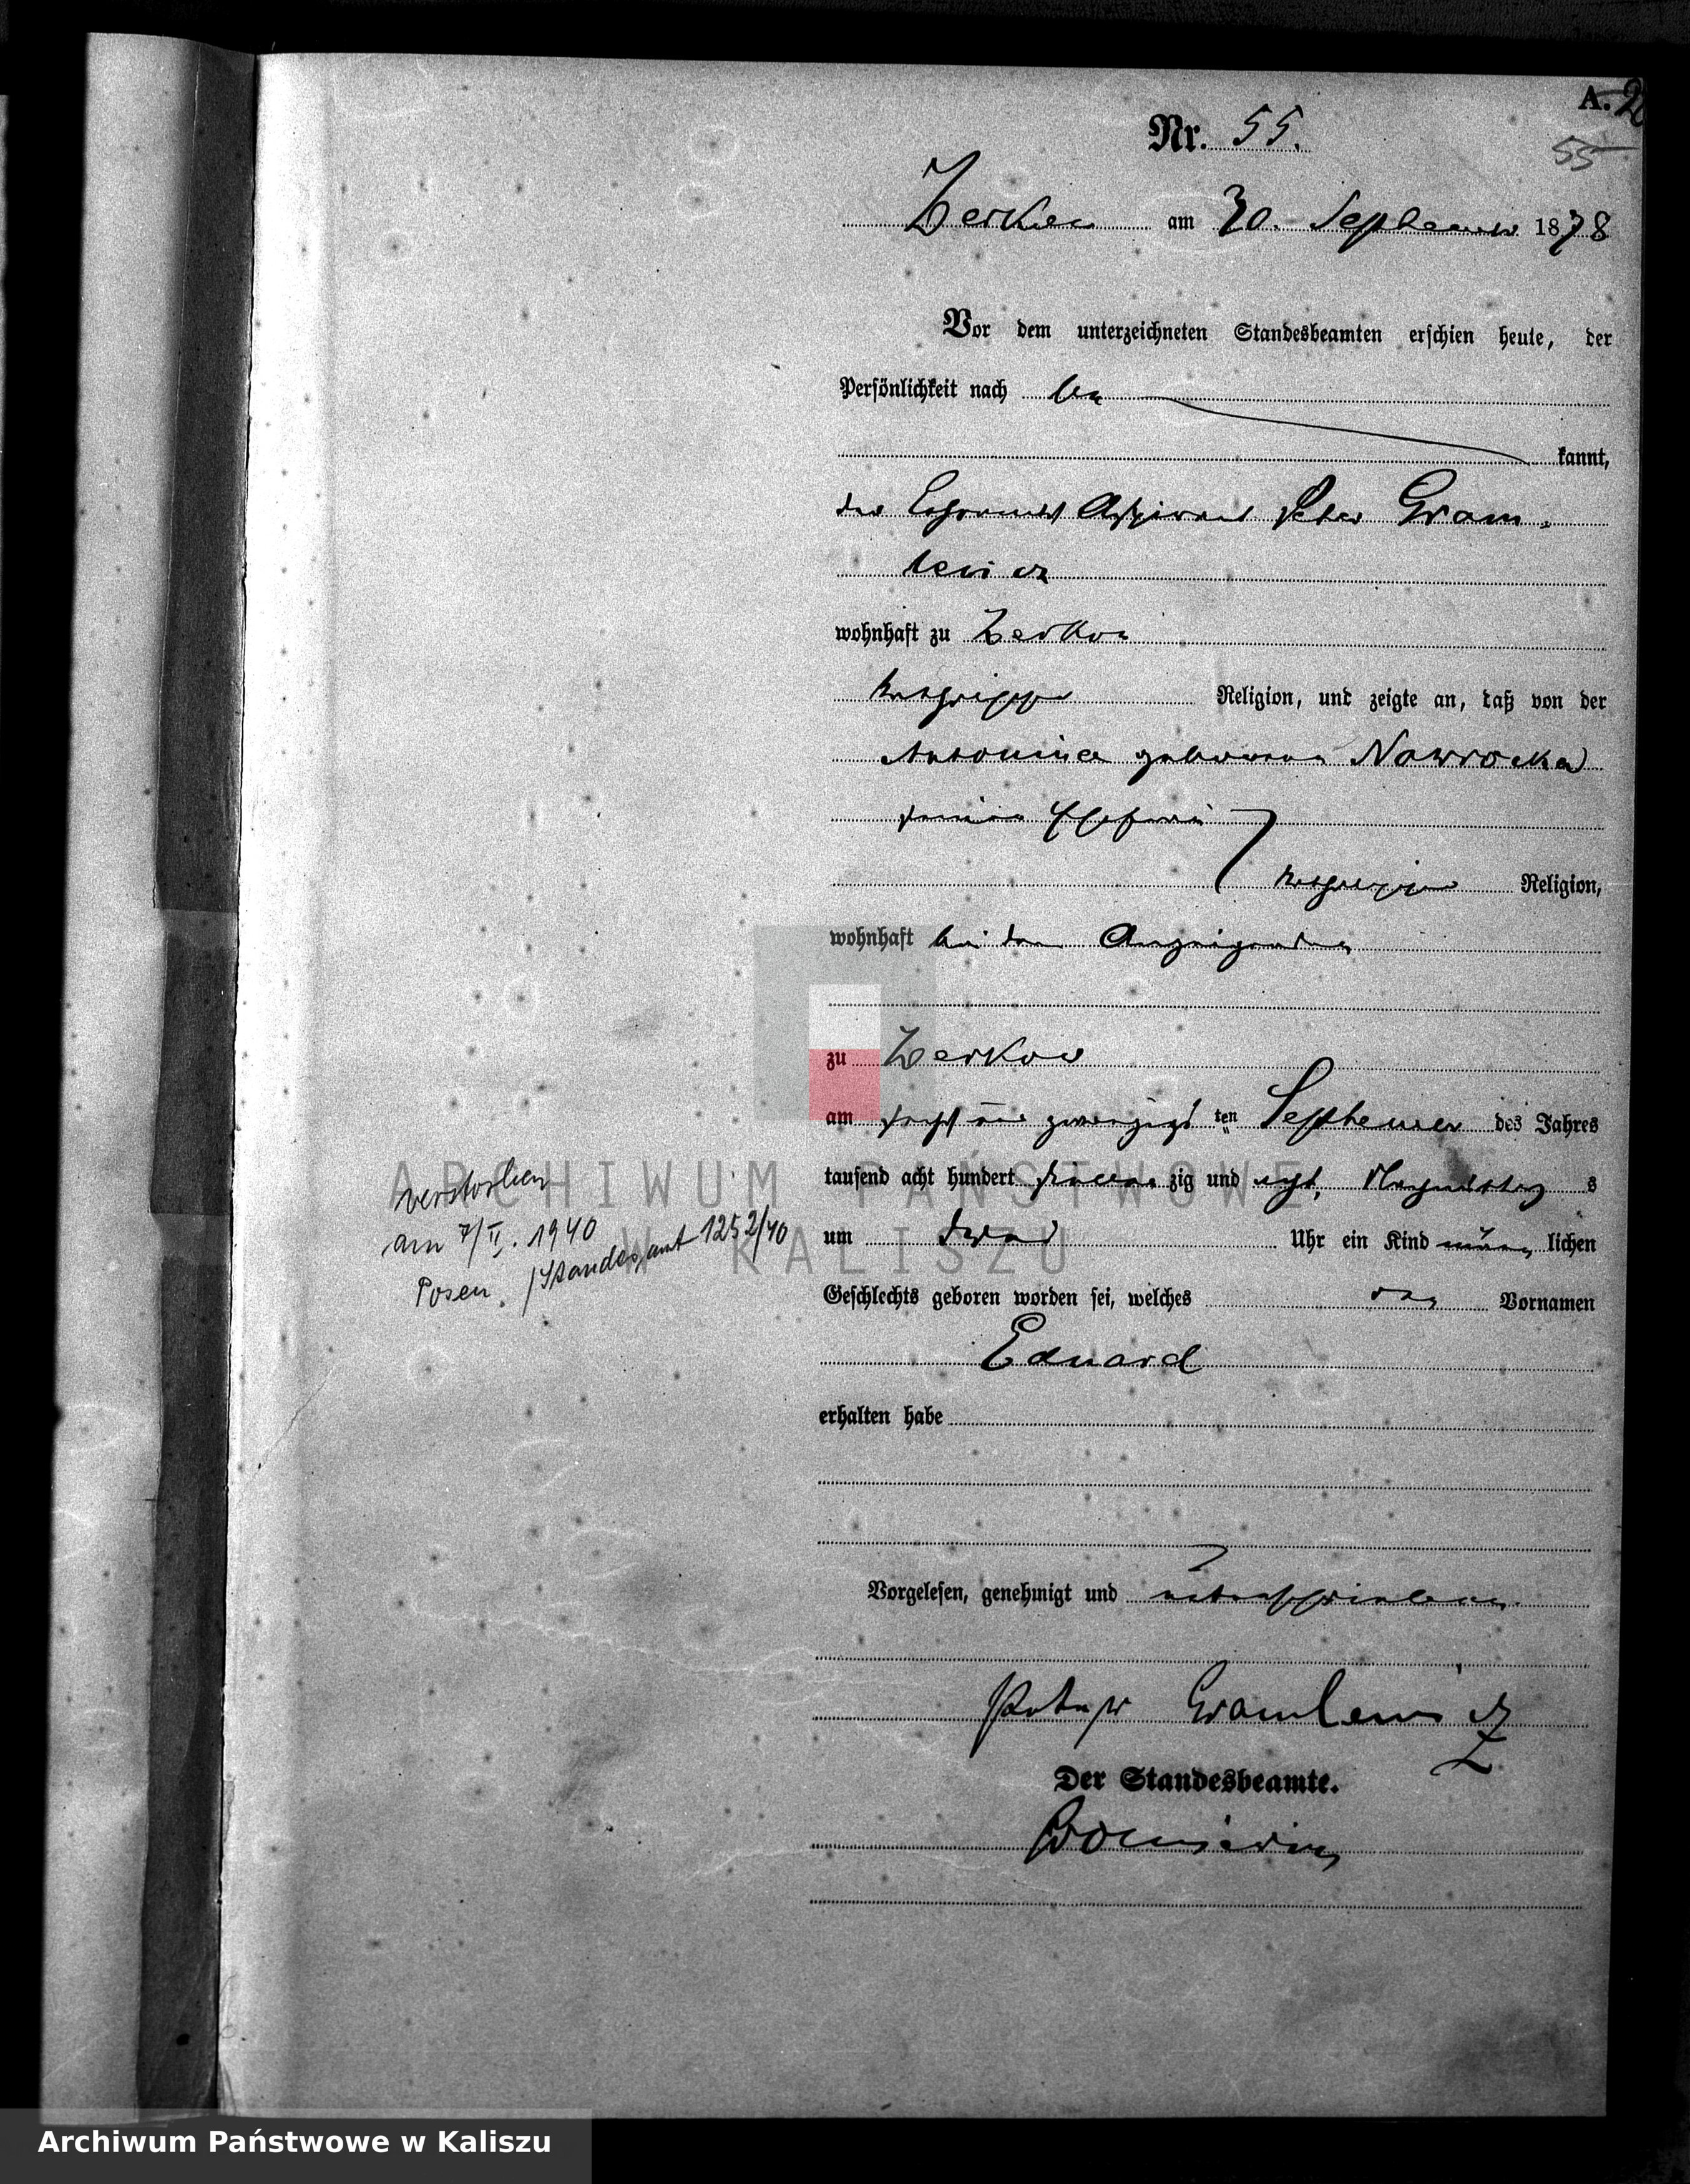 A. 2
55
Nr. 55.
Zerkow am 30. September 1878
Vor dem unterzeichneten Standesbeamten erschien heute, der
Persönlichkeit nach be
kannt,
der Aspirant Peter Gram=
lewicz
wohnhaft zu Zerkow
katholischer Religion, und zeigte an, daß von der
Antonina geborenen Nawrocka
seiner Ehefrau
katholischer Religion,
wohnhaft bei dem Anzeigenden
zu Zerkow
am sechs und zwanzigs ten September des Jahres
tausend acht hundert sieben zig und acht, Nachmittags
um drei Uhr ein Kind männ lichen
Geschlechts geboren worden sei, welches den Vornamen
Eduard
erhalten habe
Vorgelesen, genehmigt und unterschrieben
Gramlewicz
Der Standesbeamte.
verstorben
am 7/II. 1940
Posen. /Standesamt 1252/40
ARCHIWUM PAŃSTWOWE
W KALISZU
Archiwum Państwowe w Kaliszu